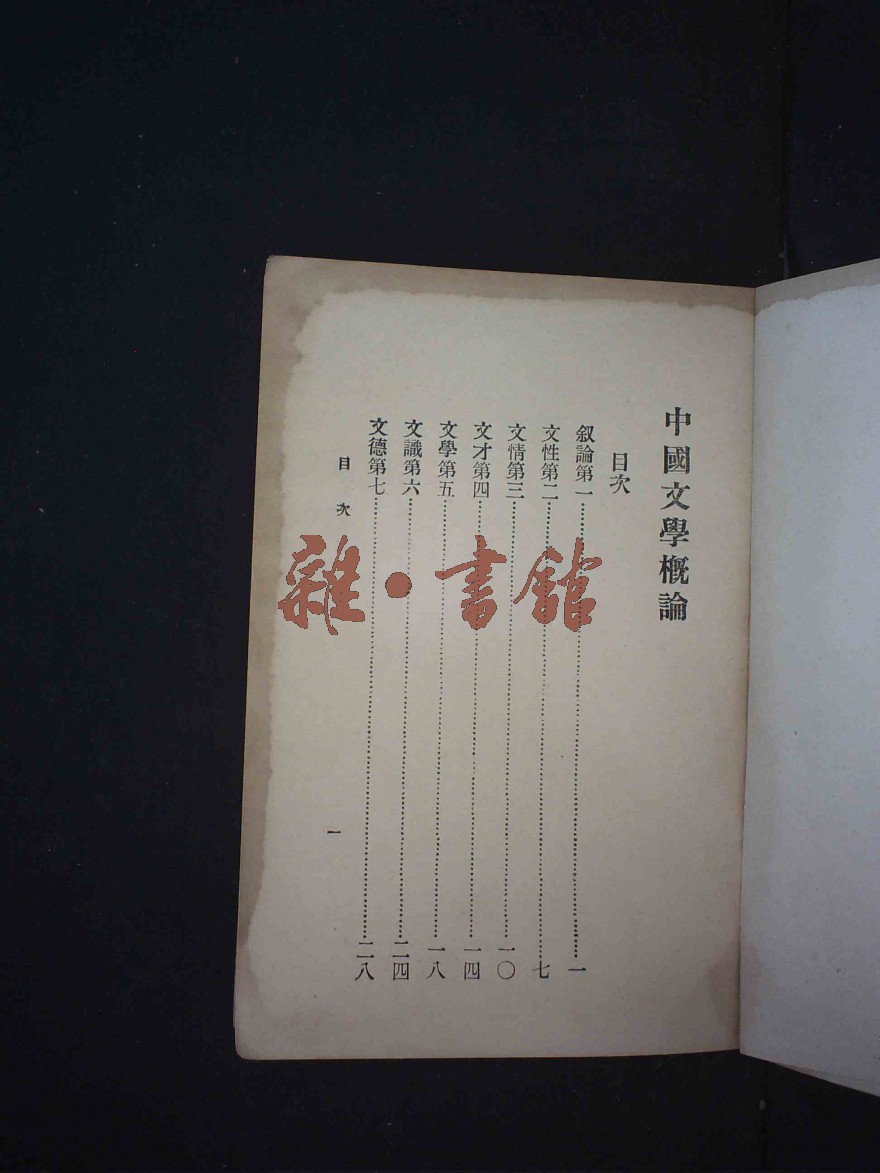 中國文學概論
目次
叙論第一……一
文性第二……七
文情第三……一〇
文才第四……一四
文學第五……一八
文識第六……二四
文德第七……二八
目次
一
雜·書館